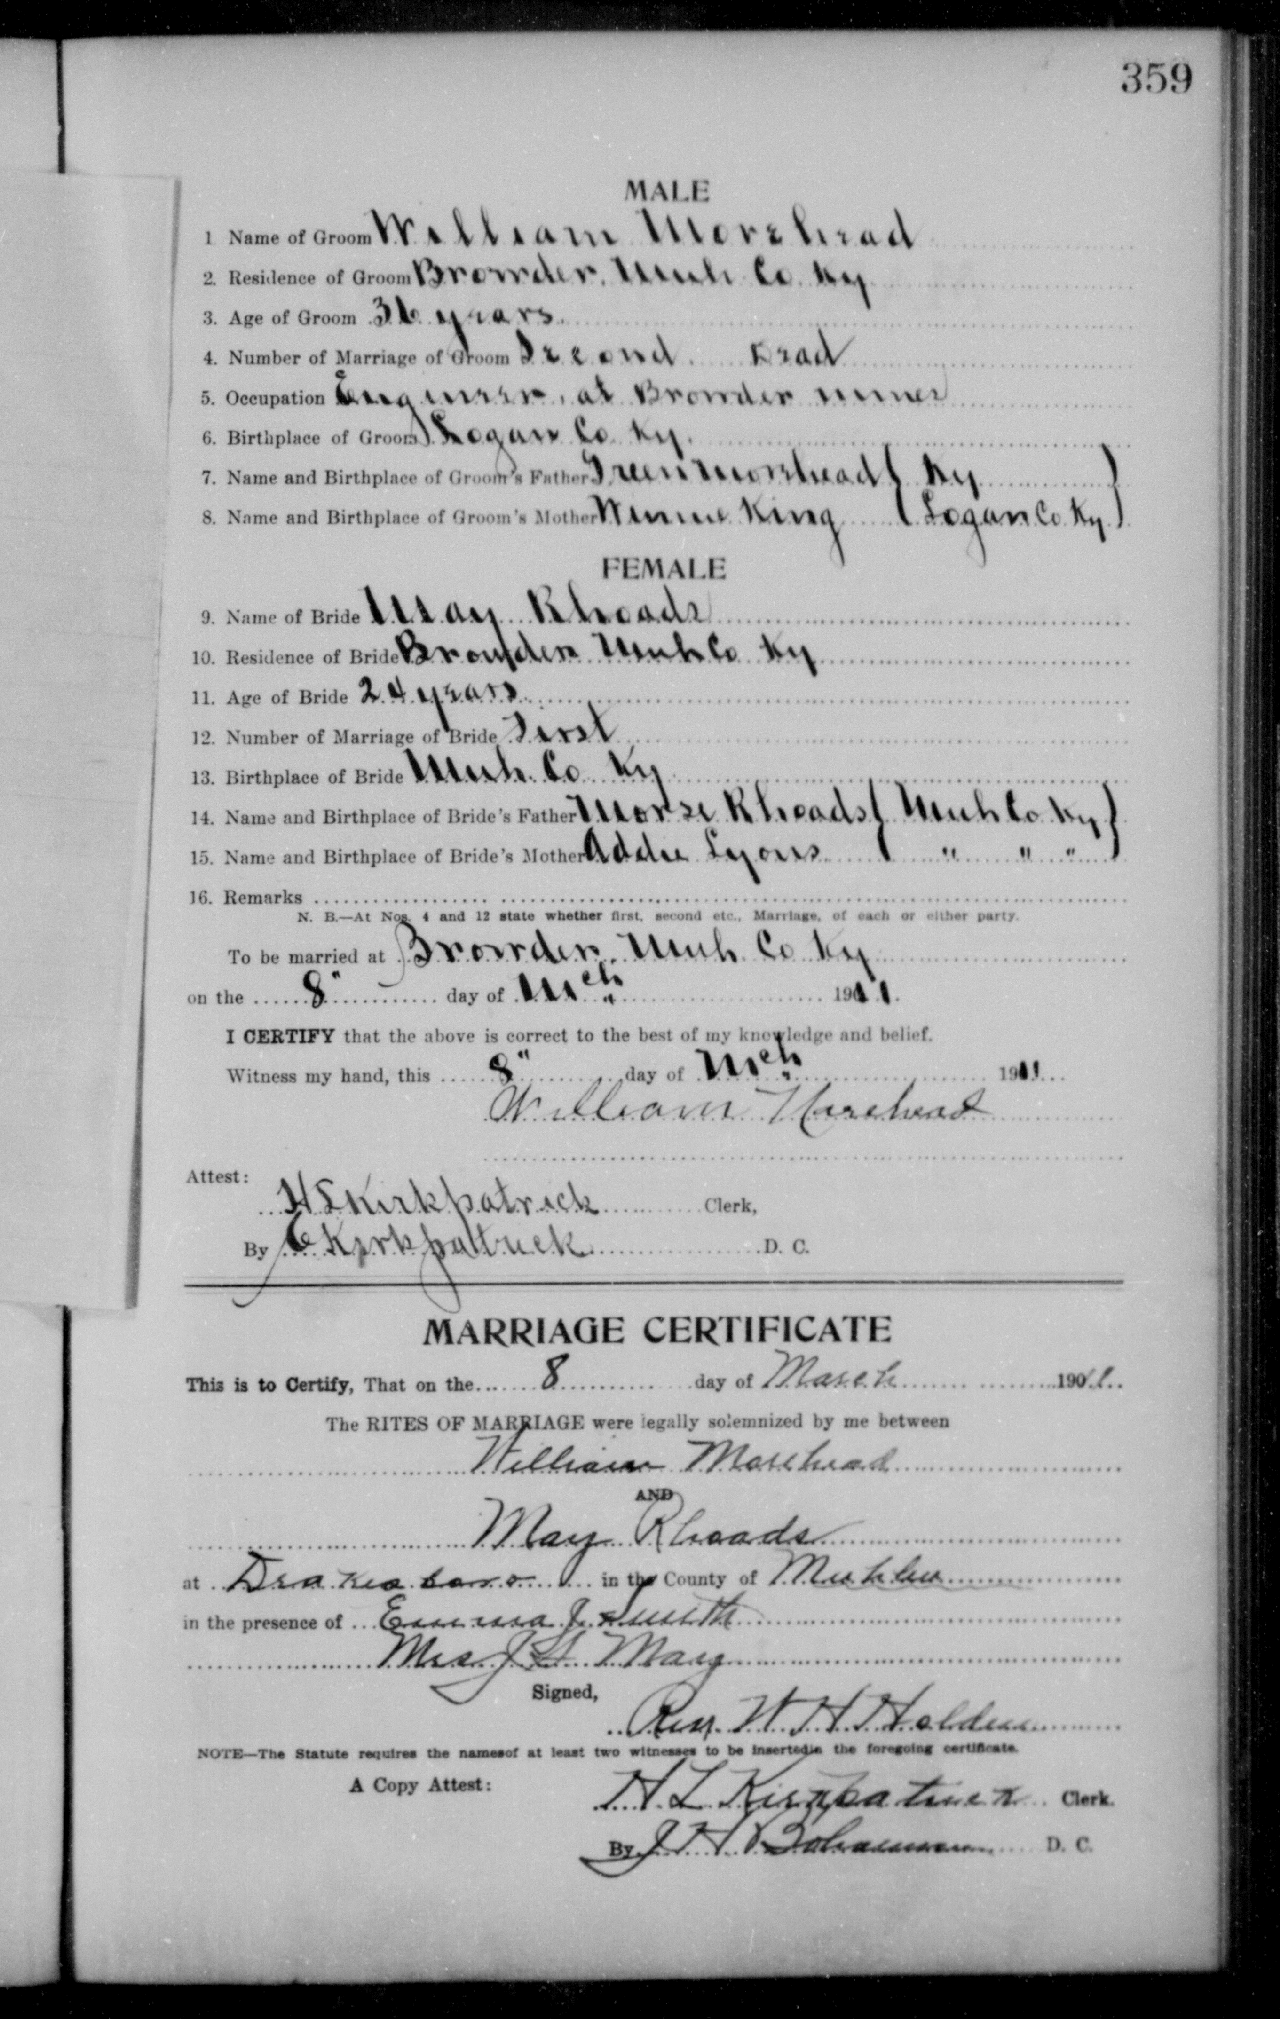 359
MALE
1 Name of Groom William Morehead
2. Residence of Groom Browder, Muh Co Ky
3. Age of Groom 36 years
4. Number of Marriage of Groom Second Dead
5. Occupation Engineer at Browder mines
6. Birthplace of Groom Logan Co Ky.
7. Name and Birthplace of Groom's Father Green Morehead { Ky }
8. Name and Birthplace of Groom's Mother Winnie King ( Logan Co Ky )
FEMALE
9. Name of Bride May Rhoads
10. Residence of Bride Browder Muh Co Ky
11. Age of Bride 24 years
12. Number of Marriage of Bride First
13. Birthplace of Bride Muh. Co Ky
14. Name and Birthplace of Bride's Father Morse Rhoads { Muh Co Ky }
15. Name and Birthplace of Bride's Mother Addie Lyons ( " " " )
16. Remarks
N. B.—At Nos. 4 and 12 state whether first, second etc., Marriage, of each or either party.
To be married at Browder, Muh Co Ky
on the 8" day of Mch 1911.
I CERTIFY that the above is correct to the best of my knowledge and belief.
Witness my hand, this 8" day of Mch 1911
William Morehead
Attest:
H L Kirkpatrick Clerk,
By C Kirkpatrick D. C.
MARRIAGE CERTIFICATE
This is to Certify, That on the 8 day of March 1901
The RITES OF MARRIAGE were legally solemnized by me between
William Morehead
AND
May Rhoads
at Drakesboro in the County of Muhlen
in the presence of Emma J. Smith
Mrs J. May
Signed,
Rev. W. H. Holden
NOTE—The Statute requires the namesof at least two witnesses to be insertedin the foregoing certificate.
A Copy Attest:
H L Kirkpatrick Clerk.
By J H D. C.